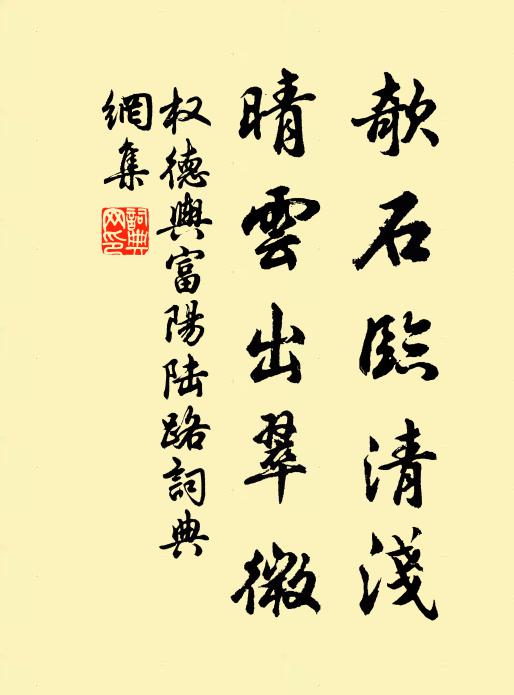 欹石臨清淺
晴雲出翠微
权德輿富陽陆路詞典
網集
詞典網印